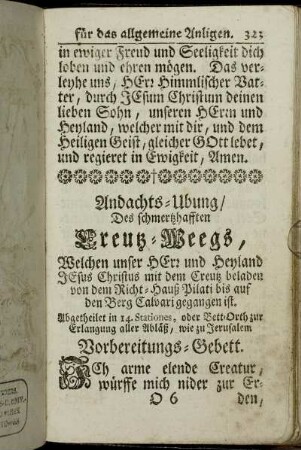 für das allgemeine Anligen. 323
in ewiger Freud und Seeligkeit dich
loben und ehren mögen. Das ver-
leyhe uns, HErr Himmlischer Vat-
ter, durch JEsum Christum deinen
lieben Sohn, unseren HErrn und
Heyland, welcher mit dir, und dem
Heiligen Geist, gleicher GOtt lebet,
und regieret in Ewigkeit, Amen.
Andachts-Ubung/
Des schmertzhafften
Creutz-Weegs,
Welchen unser HErr und Heyland
JEsus Christus mit dem Creutz beladen
von dem Richt-Hauß Pilati bis auf
den Berg Calvari gegangen ist.
Abgetheilet in 14. Stationes, oder Bett-Orth zur
Erlangung aller Abläß, wie zu Jerusalem
Vorbereitungs-Gebett.
ICh arme elende Creatur,
würffe mich nider zur Er-
O 6 den,